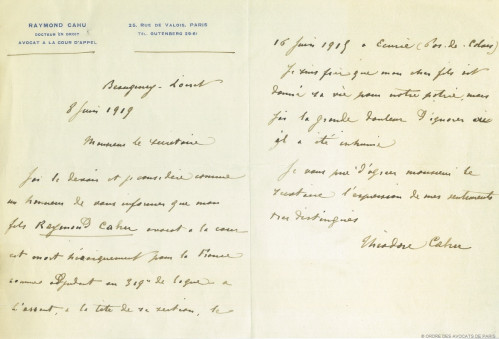 RAYMOND CAHU
DOCTEUR EN DROIT
AVOCAT A LA COUR D'APPEL
25, RUE DE VALOIS, PARIS
TÉL. GUTENBERG 29-61
Beaugency - Loiret
8 Juin 1919
Monsieur le secrétaire
J'ai le devoir et je considère comme
un honneur de vous informer que mon
fils Raymond Cahu avocat à la cour
est mort héroïquement pour la France
comme adjudant au 319e de ligne à
l'assaut, à la tête de sa section, le
16 juin 1915 à (Pas-de-Calais)
Je suis fier que mon cher fils ait
donné sa vie pour notre patrie, mais
j'ai la grande douleur d'ignorer où
il a été inhumé
Je vous prie d'agréer monsieur le
secrétaire l'expression de mes sentiments
très distingués
Théodore Cahu
© ORDRE DES AVOCATS DE PARIS